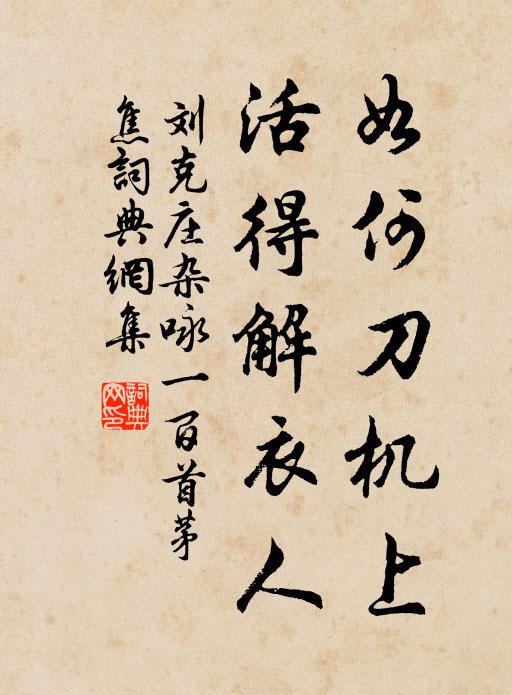 如何刀机上
活得解衣人
刘克庄杂咏一百首茅
焦詞典網集
詞典
网印